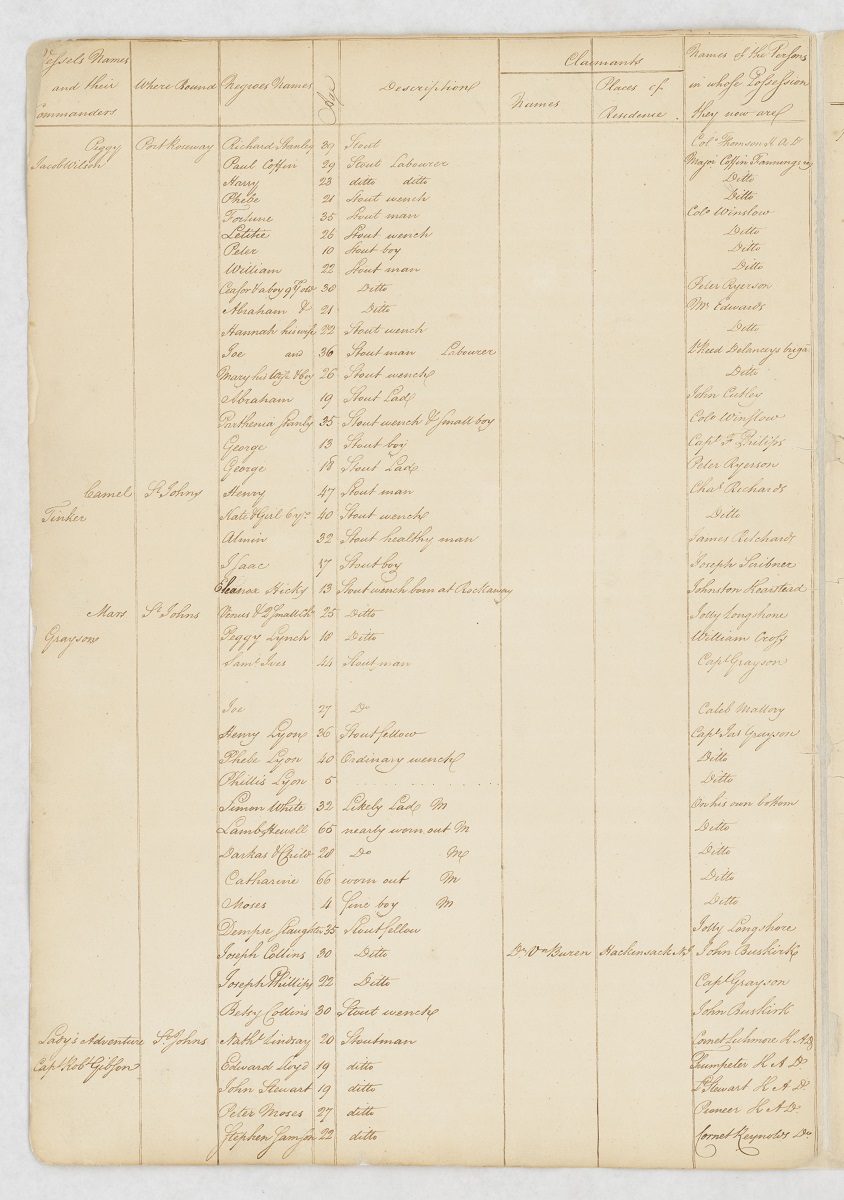 Vessels Names and their Commanders | Where Bound | Negroes Names | Age | Description | Claimants Names | Places of Residence | Names of the Persons in whose Possession they now are
Peggy | Port Roseway | Richard Stanley | 29 | Stout | Colo. Thomson K A D
Jacob Wilson | Paul Coffin | 29 | Stout Labourer | Major Coffin
Harry | 23 | ditto ditto | Ditto
Phebe | 21 | Stout wench | Ditto
Fortune | 35 | Stout man | Colo. Winslow
Letitie | 26 | Stout wench | Ditto
Peter | 10 | Stout boy | Ditto
William | 22 | Stout man | Ditto
Ceasor & a boy 9 Y old | 30 | Ditto | Peter Ryerson
Abraham & | 21 | Ditto | Mr Edwards
Hannah his wife | 22 | Stout wench | Ditto
Joe and | 36 | Stout man Labourer | Lt Reed Delanceys brigd
Mary his Wife & boy | 26 | Stout wench | Ditto
Abraham | 19 | Stout Lad | John Cutler
Parthenia Stanly | 35 | Stout wench & Small boy | Colo. Winslow
George | 13 | Stout boy | Capt. F Philips
George | 18 | Stout Lad | Peter Ryerson
Camel | St Johns | Henry | 47 | Stout man | Chas. Richards
Tinker | Kate & Girl 6 yrs | 40 | Stout wench | Ditto
Almin | 32 | Stout healthy man | James Ritchards
Isaac | 17 | Stout boy | Joseph Scribner
Eleanor Hicks | 13 | Stout wench born at Rockaway | Johnston
Mars | St Johns | Venus & 2 Small Chn | 25 | Ditto | Jolly Longshore
Grayson | Peggy Lynch | 18 | Ditto | William Cross
Saml. Ives | 44 | Stout man | Capt Grayson
Joe | 27 | Do | Caleb Mallory
Henry Lyon | 36 | Stout fellow | Capt Jas Grayson
Phebe Lyon | 40 | Ordinary wench | Ditto
Phillis Lyon | 5 | . . . . . . . . . | Ditto
Simon White | 32 | Likely Lad M | On his own bottom
Lamb Hewell | 65 | nearly worn out M | Ditto
Darkas & Child | 28 | Do M | Ditto
Catharine | 66 | worn out M | Ditto
Moses | 4 | fine boy M | Ditto
Dempse Slaughter | 35 | Stout fellow | Jolly Longshore
Joseph Collins | 30 | Ditto | Dr Vn Buren | Hackensack NJ | John Buskirk
Joseph Phillips | 22 | Ditto | Capt Grayson
Betsy Collins | 30 | Stout wench | John Buskirk
Lady's Adventure | St Johns | Nathl. Lindsay | 20 | Stout man | Cornet Lechmore K A D
Capt Robt Gibson | Edward Lloyd | 19 | ditto | Thumpeter K A D
John Stewart | 19 | ditto | Lt Stewart K A D
Peter Moses | 27 | ditto | Pioneer K A D
Stephen Samson | 22 | ditto | Cornet Reynolds Do